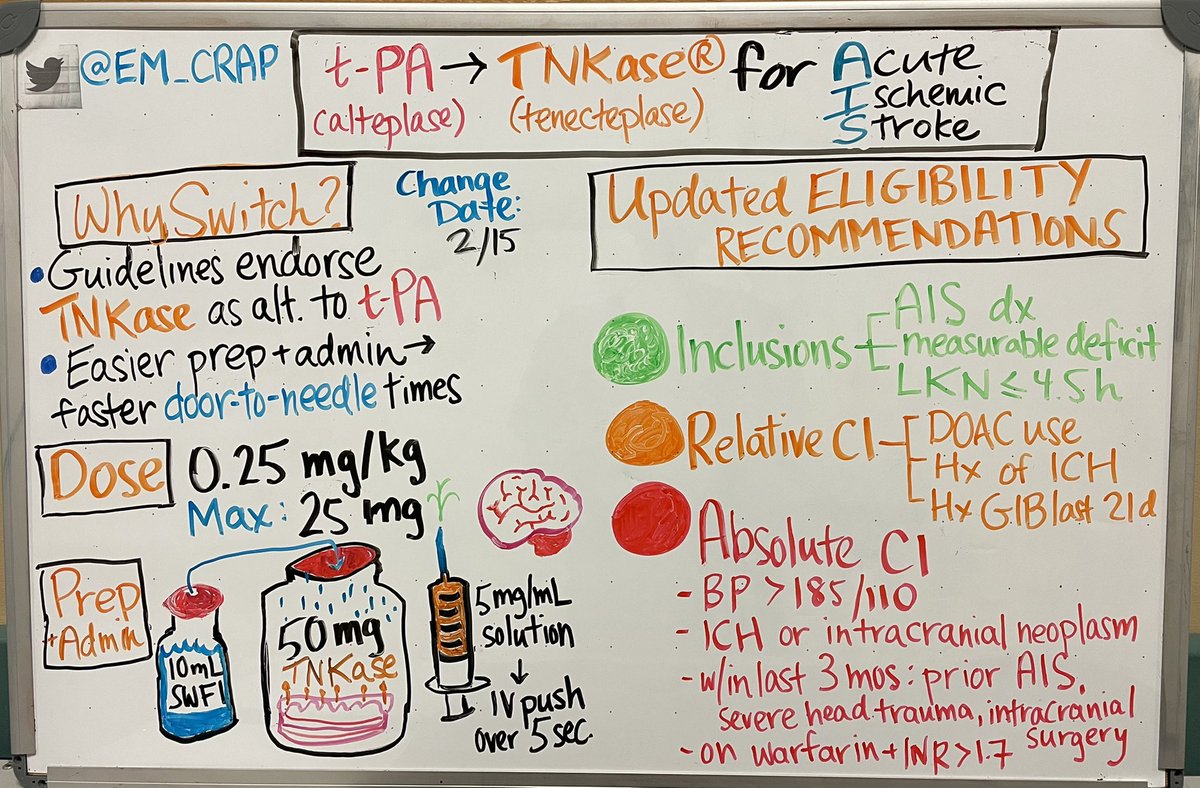 @EM_CRAP
t-PA → TNKase® for Acute
(alteplase) (tenecteplase) Ischemic
Stroke
Why Switch?
Change
Date:
2/15
• Guidelines endorse
TNKase as alt. to t-PA
• Easier prep + admin →
faster door-to-needle times
Dose 0.25 mg/kg
Max: 25 mg
Prep
+ Admin
10mL
SWFI
50mg
TNKase
5mg/mL
solution
↓
IV push
over 5 sec.
Updated ELIGIBILITY
RECOMMENDATIONS
Inclusions
AIS dx
measurable deficit
LKN ≤ 4.5h
Relative CI
DOAC use
Hx of ICH
Hx GIB last 21d
Absolute CI
- BP > 185/110
- ICH or intracranial neoplasm
- w/in last 3 mos: prior AIS,
severe head trauma, intracranial
surgery
- on warfarin + INR > 1.7